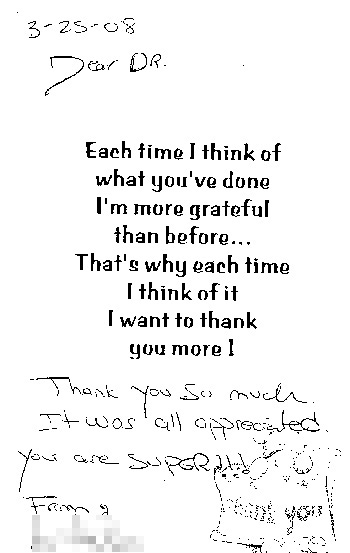 3-25-08
Dear DR.
Each time I think of
what you've done
I'm more grateful
than before...
That's why each time
I think of it
I want to thank
you more!
Thank you so much.
It was all appreciated.
you are SUPER!!!
From
thank you